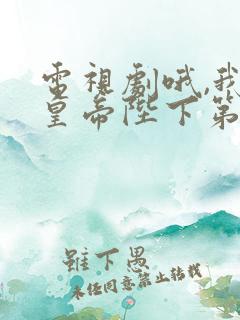 電視劇哦,我
皇帝陛下第
雖下愚
未經同意禁止轉載